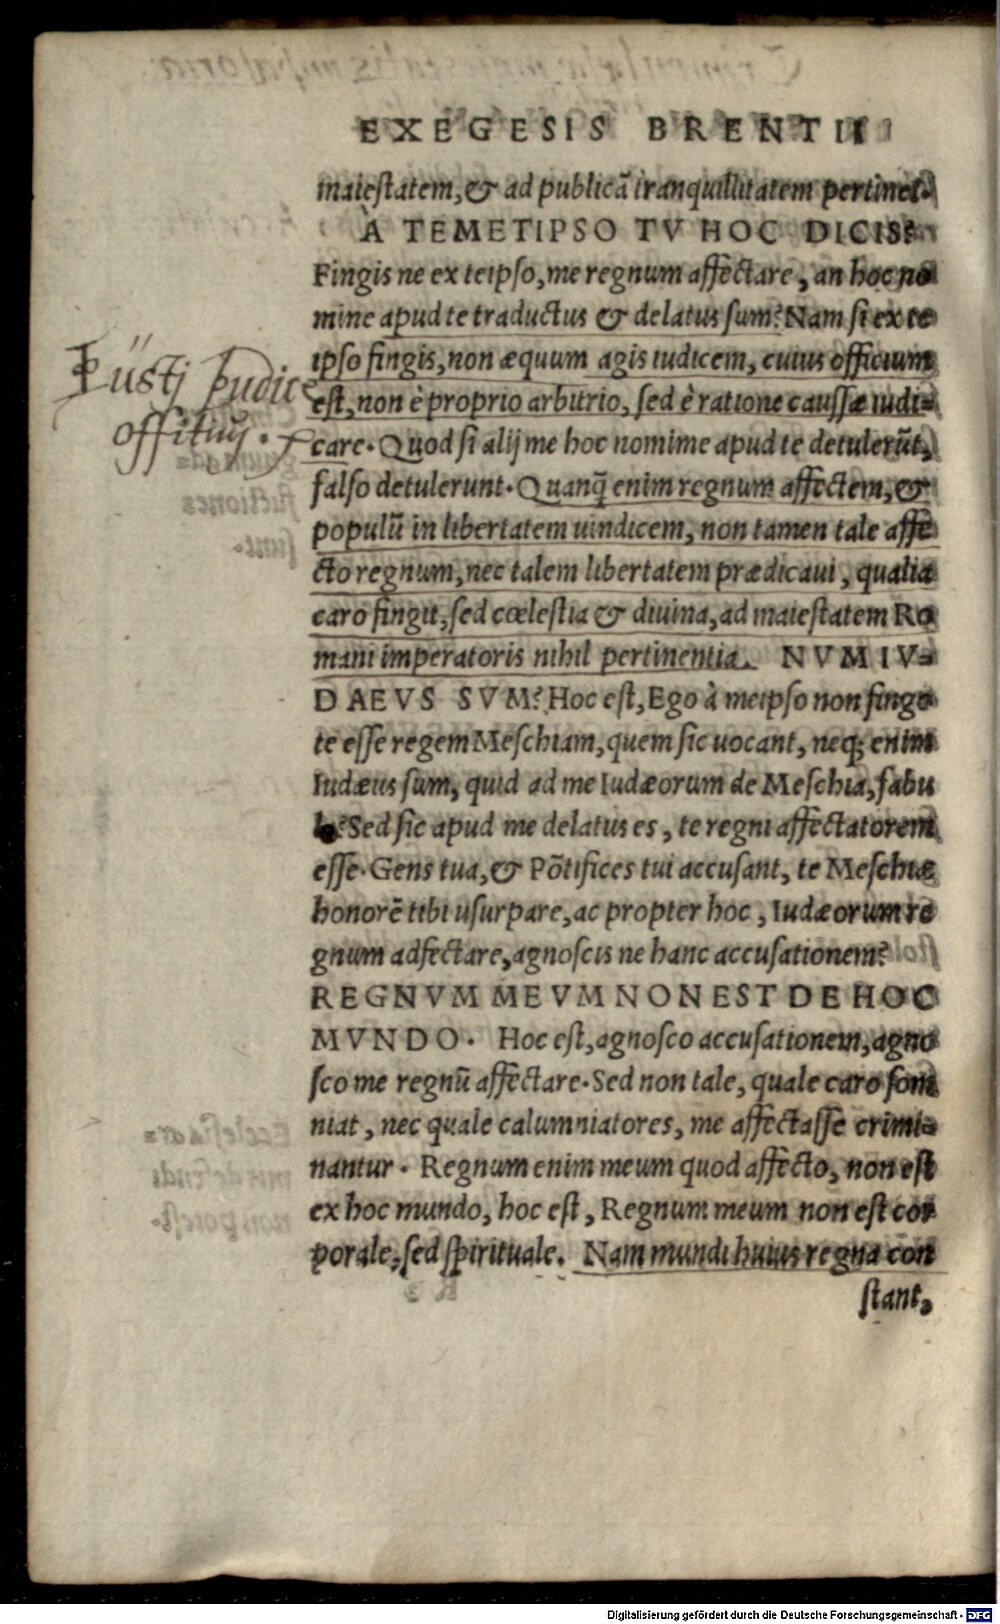 EXEGESIS BRENTII
maiestatem, & ad publicā tranquillitatem pertinet.
À TEMETIPSO TV HOC DICIS?
Fingis ne ex teipso, me regnum affectare, an hoc no
mine apud te traductus & delatus sum? Nam si ex te
ipso fingis, non æquum agis iudicem, cuius officium
est, non è proprio arbitrio, sed è ratione caussæ iudi=
care. Quod si alij me hoc nomime apud te detulerūt,
falso detulerunt. Quanq̃ enim regnum affectem, &
populū in libertatem uindicem, non tamen tale affe
cto regnum, nec talem libertatem prædicaui, qualia
caro fingit, sed cœlestia & diuina, ad maiestatem Ro
mani imperatoris nihil pertinentia. NVM IV=
DAEVS SVM? Hoc est, Ego à meipso non fingo
te esse regem Meschiam, quem sic uocant, neq; enim
Iudæus sum, quid ad me Iudæorum de Meschia, fabu
læ? Sed sic apud me delatus es, te regni affectatorem
esse. Gens tua, & Põtifices tui accusant, te Meschiæ
honorē tibi usurpare, ac propter hoc, Iudæorum re
gnum adfectare, agnoscis ne hanc accusationem?
REGNVM MEVM NON EST DE HOC
MVNDO. Hoc est, agnosco accusationem, agno
sco me regnū affectare. Sed non tale, quale caro som
niat, nec quale calumniatores, me affectasse crimi=
nantur. Regnum enim meum quod affecto, non est
ex hoc mundo, hoc est, Regnum meum non est cor
porale, sed spirituale. Nam mundi huius regna con
stant,
Justj Judic
offitiũ.